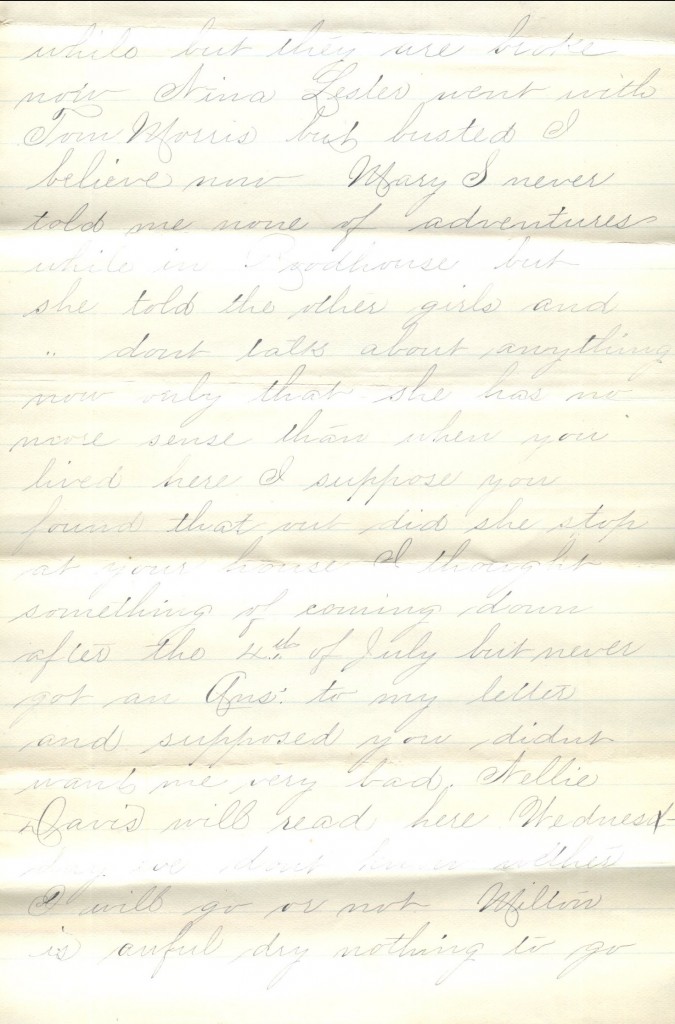 while but they are broke
now Nina Lester went with
Tom Morris but busted I
believe now Mary S never
told me none of adventures
while in Roodhouse but
she told the other girls and
" dont talk about anything
now only that she has no
more sense than when you
lived here I suppose you
found that out did she stop
at your house I thought
something of coming down
after the 4th of July but never
got an Ans. to my letter
and supposed you didnt
want me very bad. Nellie
Davis will read here Wednes-
day eve dont know wether
I will go or not Milton
is awful dry nothing to go